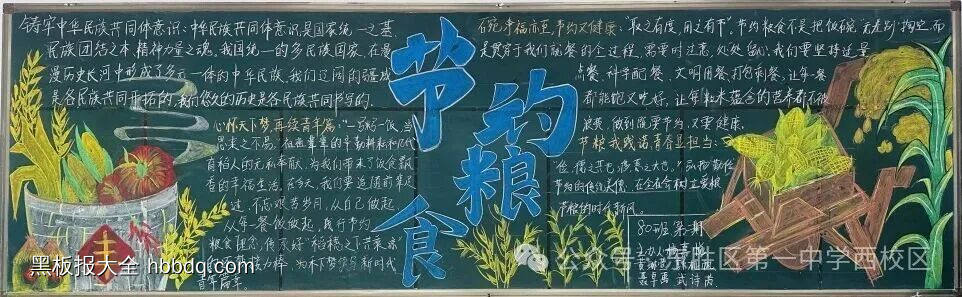 铸牢中华民族共同体意识:中华民族共同体意识是国家统一之基、
民族团结之本、精神力量之魂。我国统一的多民族国家,在漫
漫历史长河中形成了多元一体的中华民族。我们辽阔的疆域
是各民族共同开拓的,我们悠久的历史是各民族共同书写的。
心怀天下梦,再续青年篇:“一粥一饭,当
思来之不易。
有稻人的无私奉献,为我们带来了饭食飘
香的幸福生活。在今天,我们要追随前辈足
迹,不畏艰苦岁月,从自己做起
从每餐做起,践行节约
粮食理念,传承好“稻穗之下乘凉”
新时代
青年篇章。
丰
节约
粮食
“取之有度,用之有节”节约粮食不是把饭碗
是贯穿于我们就餐的全过程,需要时时注意、处处留心,我们要坚持适量
点餐、科学配餐、文明用餐、打包剩餐,让每一餐
都能饱又吃好,让每粒米蕴含的营养都不被
浪费,做到既要节约,又要健康。
节粮我践诺,青春显担当:
节约的传统美德,在全社会树立爱粮
节粮的时代新风。
80班 第 期
主办人
黑板报大全 hbbdq.com
公众号 社区第一中学西校区